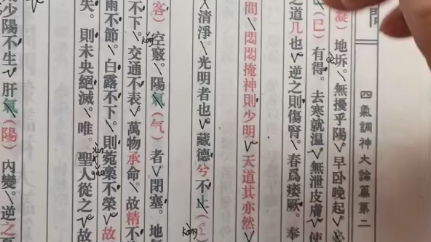 四氣調神大論篇第二
凝）地坼。無擾乎陽。早卧晚起。必
（已）有得。去寒就温。無泄皮膚。使
之道几也。逆之則傷腎。春爲痿厥。奉
間。悶悶掩神則少明。天道其亦然
清淨。光明者也。藏德兮不上
客）空竅。陽氣（气）者閉塞。地
不下。交通不表。萬物承命。故精不
雨不節。白露不下。則菀槀不榮。故
矣。則未央絕滅。唯聖人從之。故
少陽不生。肝氣（陽）內變。逆之